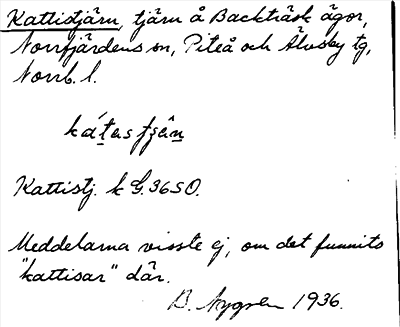 Kattistjärn, tjärn å Backträsk ägor,
Norrfjärdens sn, Piteå och Älvsby tg,
Norrb. l.
kátas
Kattistj. k G. 36 SO.
Meddelarna visste ej, om det funnits
"kattisar" där.
B. Nygren 1936.